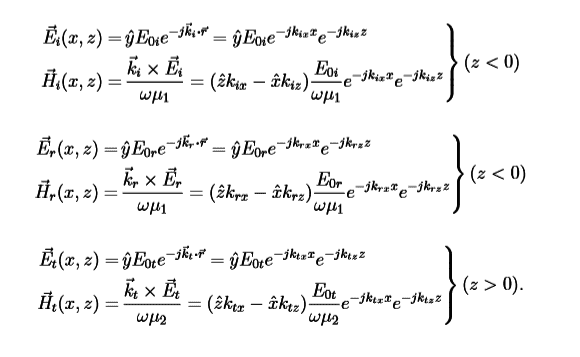 $\vec{E}_i(x,z) = \hat{y}E_{0i}e^{-j\vec{k}_i\cdot\vec{r}} = \hat{y}E_{0i}e^{-jk_{ix}x}e^{-jk_{iz}z}$
$\vec{H}_i(x,z) = \dfrac{\vec{k}_i \times \vec{E}_i}{\omega\mu_1} = (\hat{z}k_{ix} - \hat{x}k_{iz})\dfrac{E_{0i}}{\omega\mu_1}e^{-jk_{ix}x}e^{-jk_{iz}z}$ } $(z < 0)$
$\vec{E}_r(x,z) = \hat{y}E_{0r}e^{-j\vec{k}_r\cdot\vec{r}} = \hat{y}E_{0r}e^{-jk_{rx}x}e^{-jk_{rz}z}$
$\vec{H}_r(x,z) = \dfrac{\vec{k}_r \times \vec{E}_r}{\omega\mu_1} = (\hat{z}k_{rx} - \hat{x}k_{rz})\dfrac{E_{0r}}{\omega\mu_1}e^{-jk_{rx}x}e^{-jk_{rz}z}$ } $(z < 0)$
$\vec{E}_t(x,z) = \hat{y}E_{0t}e^{-j\vec{k}_t\cdot\vec{r}} = \hat{y}E_{0t}e^{-jk_{tx}x}e^{-jk_{tz}z}$
$\vec{H}_t(x,z) = \dfrac{\vec{k}_t \times \vec{E}_t}{\omega\mu_2} = (\hat{z}k_{tx} - \hat{x}k_{tz})\dfrac{E_{0t}}{\omega\mu_2}e^{-jk_{tx}x}e^{-jk_{tz}z}$ } $(z > 0).$